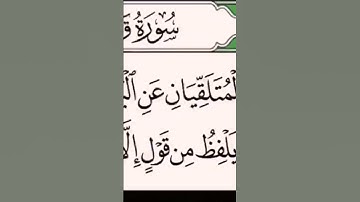 سُورَةُ قٓ
ٱلْمُتَلَقِّيَانِ عَنِ
يَلْفِظُ مِن قَوْلٍ إِلَّا